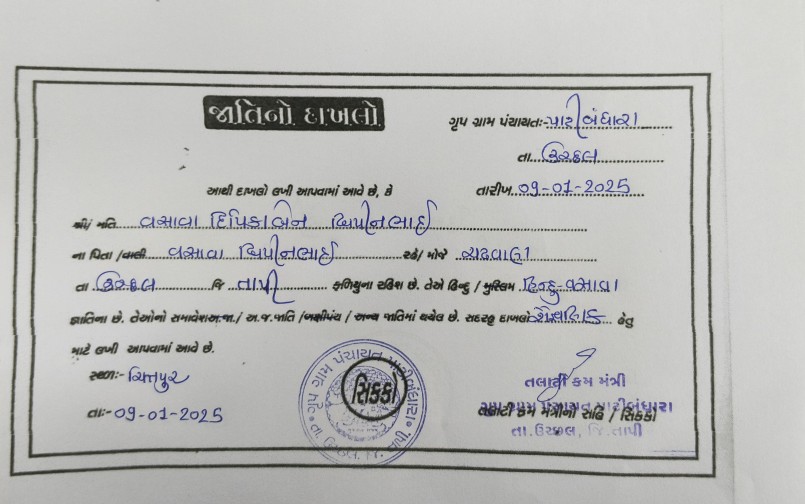 જાતિનો દાખલો
ગૃપ ગ્રામ પંચાયત:- પાટીબંધારા
તા. ઉચ્છલ
આથી દાખલો લખી આપવામાં આવે છે, કે તારીખ 09-01-2025
શ્રી/ મતિ વસાવા દિપિકાબેન બિપીનભાઈ
ના પિતા /વાલી વસાવા બિપીનભાઈ રહે/ મોજે
તા ઉચ્છલ જિ તાપી ફળિયુના રહિશ છે. તેઓ હિન્દુ / મુસ્લિમ હિન્દુ-વસાવા
જ્ઞાતિના છે. તેઓનો સમાવેશ અ.જા. / અ.જ.જાતિ /બક્ષીપંચ / અન્ય જાતિમાં થયેલ છે. સદરહુ દાખલો શૈક્ષણિક હેતુ
માટે લખી આપવામાં આવે છે.
સ્થળ:-
તા:- 09-01-2025
ગૃપ ગ્રામ પંચાયત પાટીબંધારા
સિકકો
તા. ઉચ્છલ, જિ. તાપી.
તલાટી કમ મંત્રી
ગૃપ ગ્રામ પંચાયત પાટીબંધારા
તલાટી કમ મંત્રીની સહિ / સિકકો
તા.ઉચ્છલ, જિ.તાપી